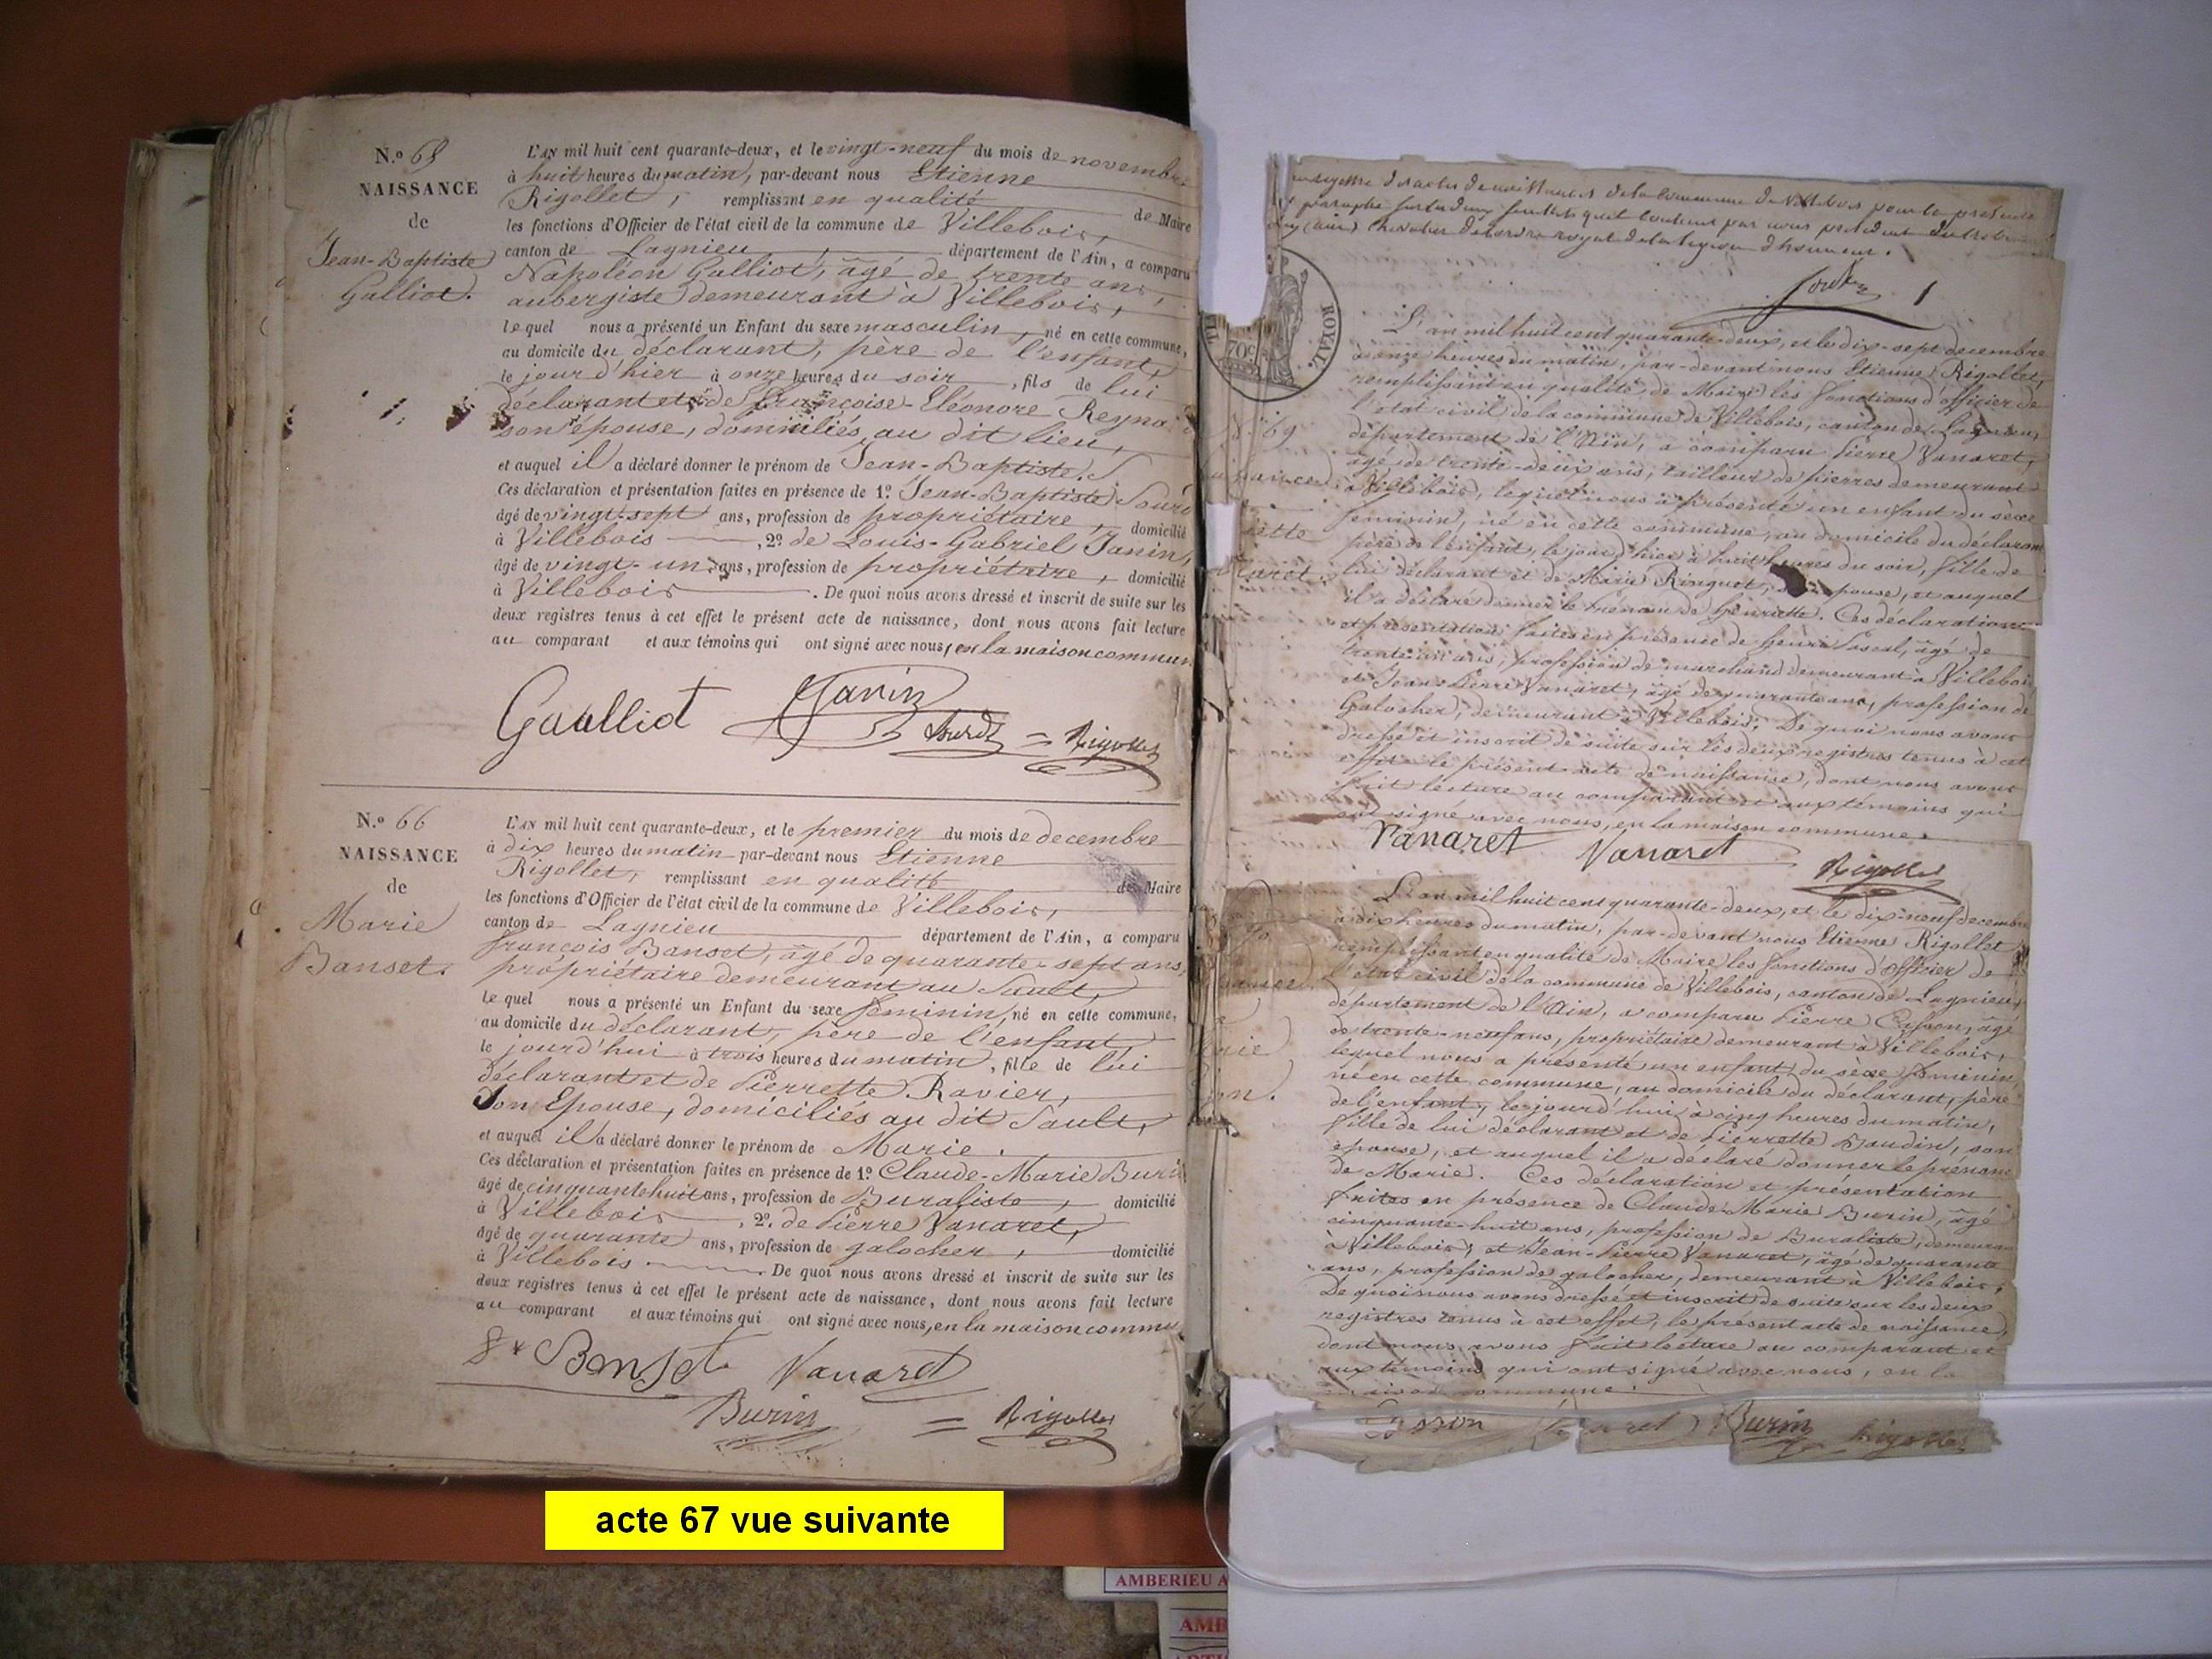 N.º 65
NAISSANCE
de
Jean-Baptiste
Galliot.
L'AN mil huit cent quarante-deux, et le vingt-neuf du mois de novembre
à huit heures du matin, par-devant nous Etienne
Rigollet, remplissant en qualité de Maire
les fonctions d'Officier de l'état civil de la commune de Villebois,
canton de Lagnieu, département de l'Ain, a comparu
Napoléon Galliot, âgé de trente ans,
aubergiste demeurant à Villebois,
Lequel nous a présenté un Enfant du sexe masculin, né en cette commune,
au domicile du déclarant, père de l'enfant,
le jour d'hier à onze heures du soir, fils de lui
déclarant et de Françoise-Eléonore Reyna
son épouse, domiciliés au dit lieu,
et auquel il a déclaré donner le prénom de Jean-Baptiste.
Ces déclaration et présentation faites en présence de 1º Jean-Baptiste
âgé de vingt-sept ans, profession de propriétaire, domicilié
à Villebois, 2º de Louis-Gabriel Janin,
âgé de vingt-un ans, profession de propriétaire, domicilié
à Villebois. De quoi nous avons dressé et inscrit de suite sur les
deux registres tenus à cet effet le présent acte de naissance, dont nous avons fait lecture
au comparant et aux témoins qui ont signé avec nous, en la maison commun
Gaulliot Janin
Rigollet
N.º 66
NAISSANCE
de
Marie
Banset.
L'AN mil huit cent quarante-deux, et le premier du mois de decembre
à dix heures du matin par-devant nous Etienne
Rigollet, remplissant en qualité de Maire
les fonctions d'Officier de l'état civil de la commune de Villebois,
canton de Lagnieu département de l'Ain, a comparu
françois Banset, âgé de quarante-sept ans,
propriétaire demeurant au Sault,
Le quel nous a présenté un Enfant du sexe feminin, né en cette commune,
au domicile du déclarant, père de l'enfant,
le jourd'hui à trois heures du matin, fille de lui
déclarant et de Pierrette Ravier,
Son Epouse, domiciliés au dit Sault,
et auquel il a déclaré donner le prénom de Marie.
Ces déclaration et présentation faites en présence de 1º Claude-Marie Buri
âgé de cinquante huit ans, profession de Buraliste, domicilié
à Villebois, 2º. de Pierre Vanaret,
âgé de quarante ans, profession de galocher, domicilié
à Villebois De quoi nous avons dressé et inscrit de suite sur les
deux registres tenus à cet effet le présent acte de naissance, dont nous avons fait lecture
au comparant et aux témoins qui ont signé avec nous, en la maison commu
Banset Vanaret
Burin Rigollet
acte 67 vue suivante
registre des actes de naissances de la commune de Villebois pour la présente
paraphé par nous président du
chevalier de l'ordre royal de la légion d'honneur.
1
ROYAL
70c
Nº 69
iette
naret
L'an mil huit cent quarante-deux, et le dix-sept decembre
à onze heures du matin, par-devant nous Etienne Rigollet,
remplissant en qualité de Maire les fonctions d'officier de
l'état civil de la commune de Villebois, canton de Lagnieu,
département de l'Ain, a comparu Pierre Vanaret,
âgé de trente-deux ans, tailleur de pierres demeurant
à Villebois, lequel nous a présenté un enfant du sèxe
feminin, né en cette commune, au domicile du déclarant
père de l'enfant, le jour d'hier à huit heures du soir, fille de
lui déclarant et de Marie Ringuet, pouse, et auquel
il a déclaré donner le prénom de henriette. Ces déclaration
et présentation faites en présence de henri Pascal, âgé de
trente-un ans, profession de marchand demeurant à Villebois
et Jean-Pierre Vanaret, âgé de quarante ans, profession de
Galocher, demeurant à Villebois; De quoi nous avons
dressé et inscrit de suite sur les deux registres tenus à cet
effet le présent acte de naissance, dont nous avons
fait lecture au comparant et aux témoins qui
ont signé avec nous, en la maison commune.
Vanaret Vanaret
Rigollet
70
rie
on.
L'an mil huit cent quarante-deux, et le dix-neuf decembre
à dix heures du matin, par-devant nous Etienne Rigollet
remplissant en qualité de Maire les fonctions d'officier de
l'état civil de la commune de Villebois, canton de Lagnieu,
département de l'Ain, a comparu Pierre Cysson, âgé
de trente-neuf ans, propriétaire demeurant à Villebois,
lequel nous a présenté un enfant du sèxe feminin,
né en cette commune, au domicile du déclarant, père
de l'enfant, le jourd'hui à cinq heures du matin,
fille de lui déclarant et de Pierrette Baudin, son
épouse, et auquel il a déclaré donner le prénom
de Marie. Ces déclaration et présentation
faites en présence de Claude-Marie Burin, âgé
cinquante-huit ans, profession de Buraliste, demeuran
à Villebois, et Jean-Pierre Vanaret, âgé de quarante
ans, profession de galocher, demeurant à Villebois,
De quoi nous avons dressé et inscrit de suite sur les deux
registres tenus à cet effet, le présent acte de naissance,
dont nous avons fait lecture au comparant et
aux témoins qui ont signé avec nous, en la
maison commune.
Cysson Vanaret Burin Rigollet
AMBERIEU A
AMB